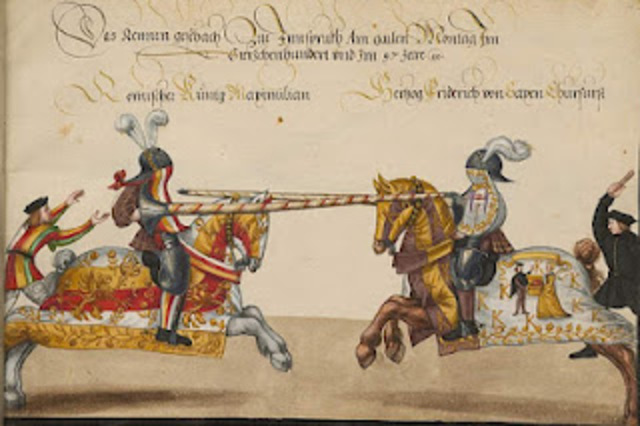 Das Rennen geschach Zu Innsprukh Am gailen Montag Im
Vierzehenhundert vnd Im Jare
Romischer Künig Maximilian
Hertzog Friderich von Saxen Churfürst